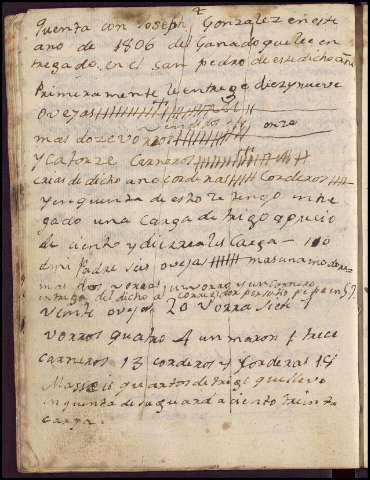 quenta con Joseph Gonzalez en este
ano de 1806 del Ganado que le en
tregado en el san pedro de este dicho año
Primeramente le entrege diez y nueve
ovejas
mas doze vorros onze
y catorze carneros
crias de dicho ano corderas corderos
y en quenta de esto le tengo intre
gado una carga de trigo a precio
de ciento y diez reales carga — 110
de mi Padre seis ovejas mas una modorra
mas dos vorras un vorro y un carnero
intrega del dicho a
veinte ovejas 20 vorra siete 7
vorros quatro 4 un maron 1 trece
carneros 13 corderos y Corderas 14
Mas seis quartos de trigo que llevo
in quenta de su guarda a ciento treinta
carga